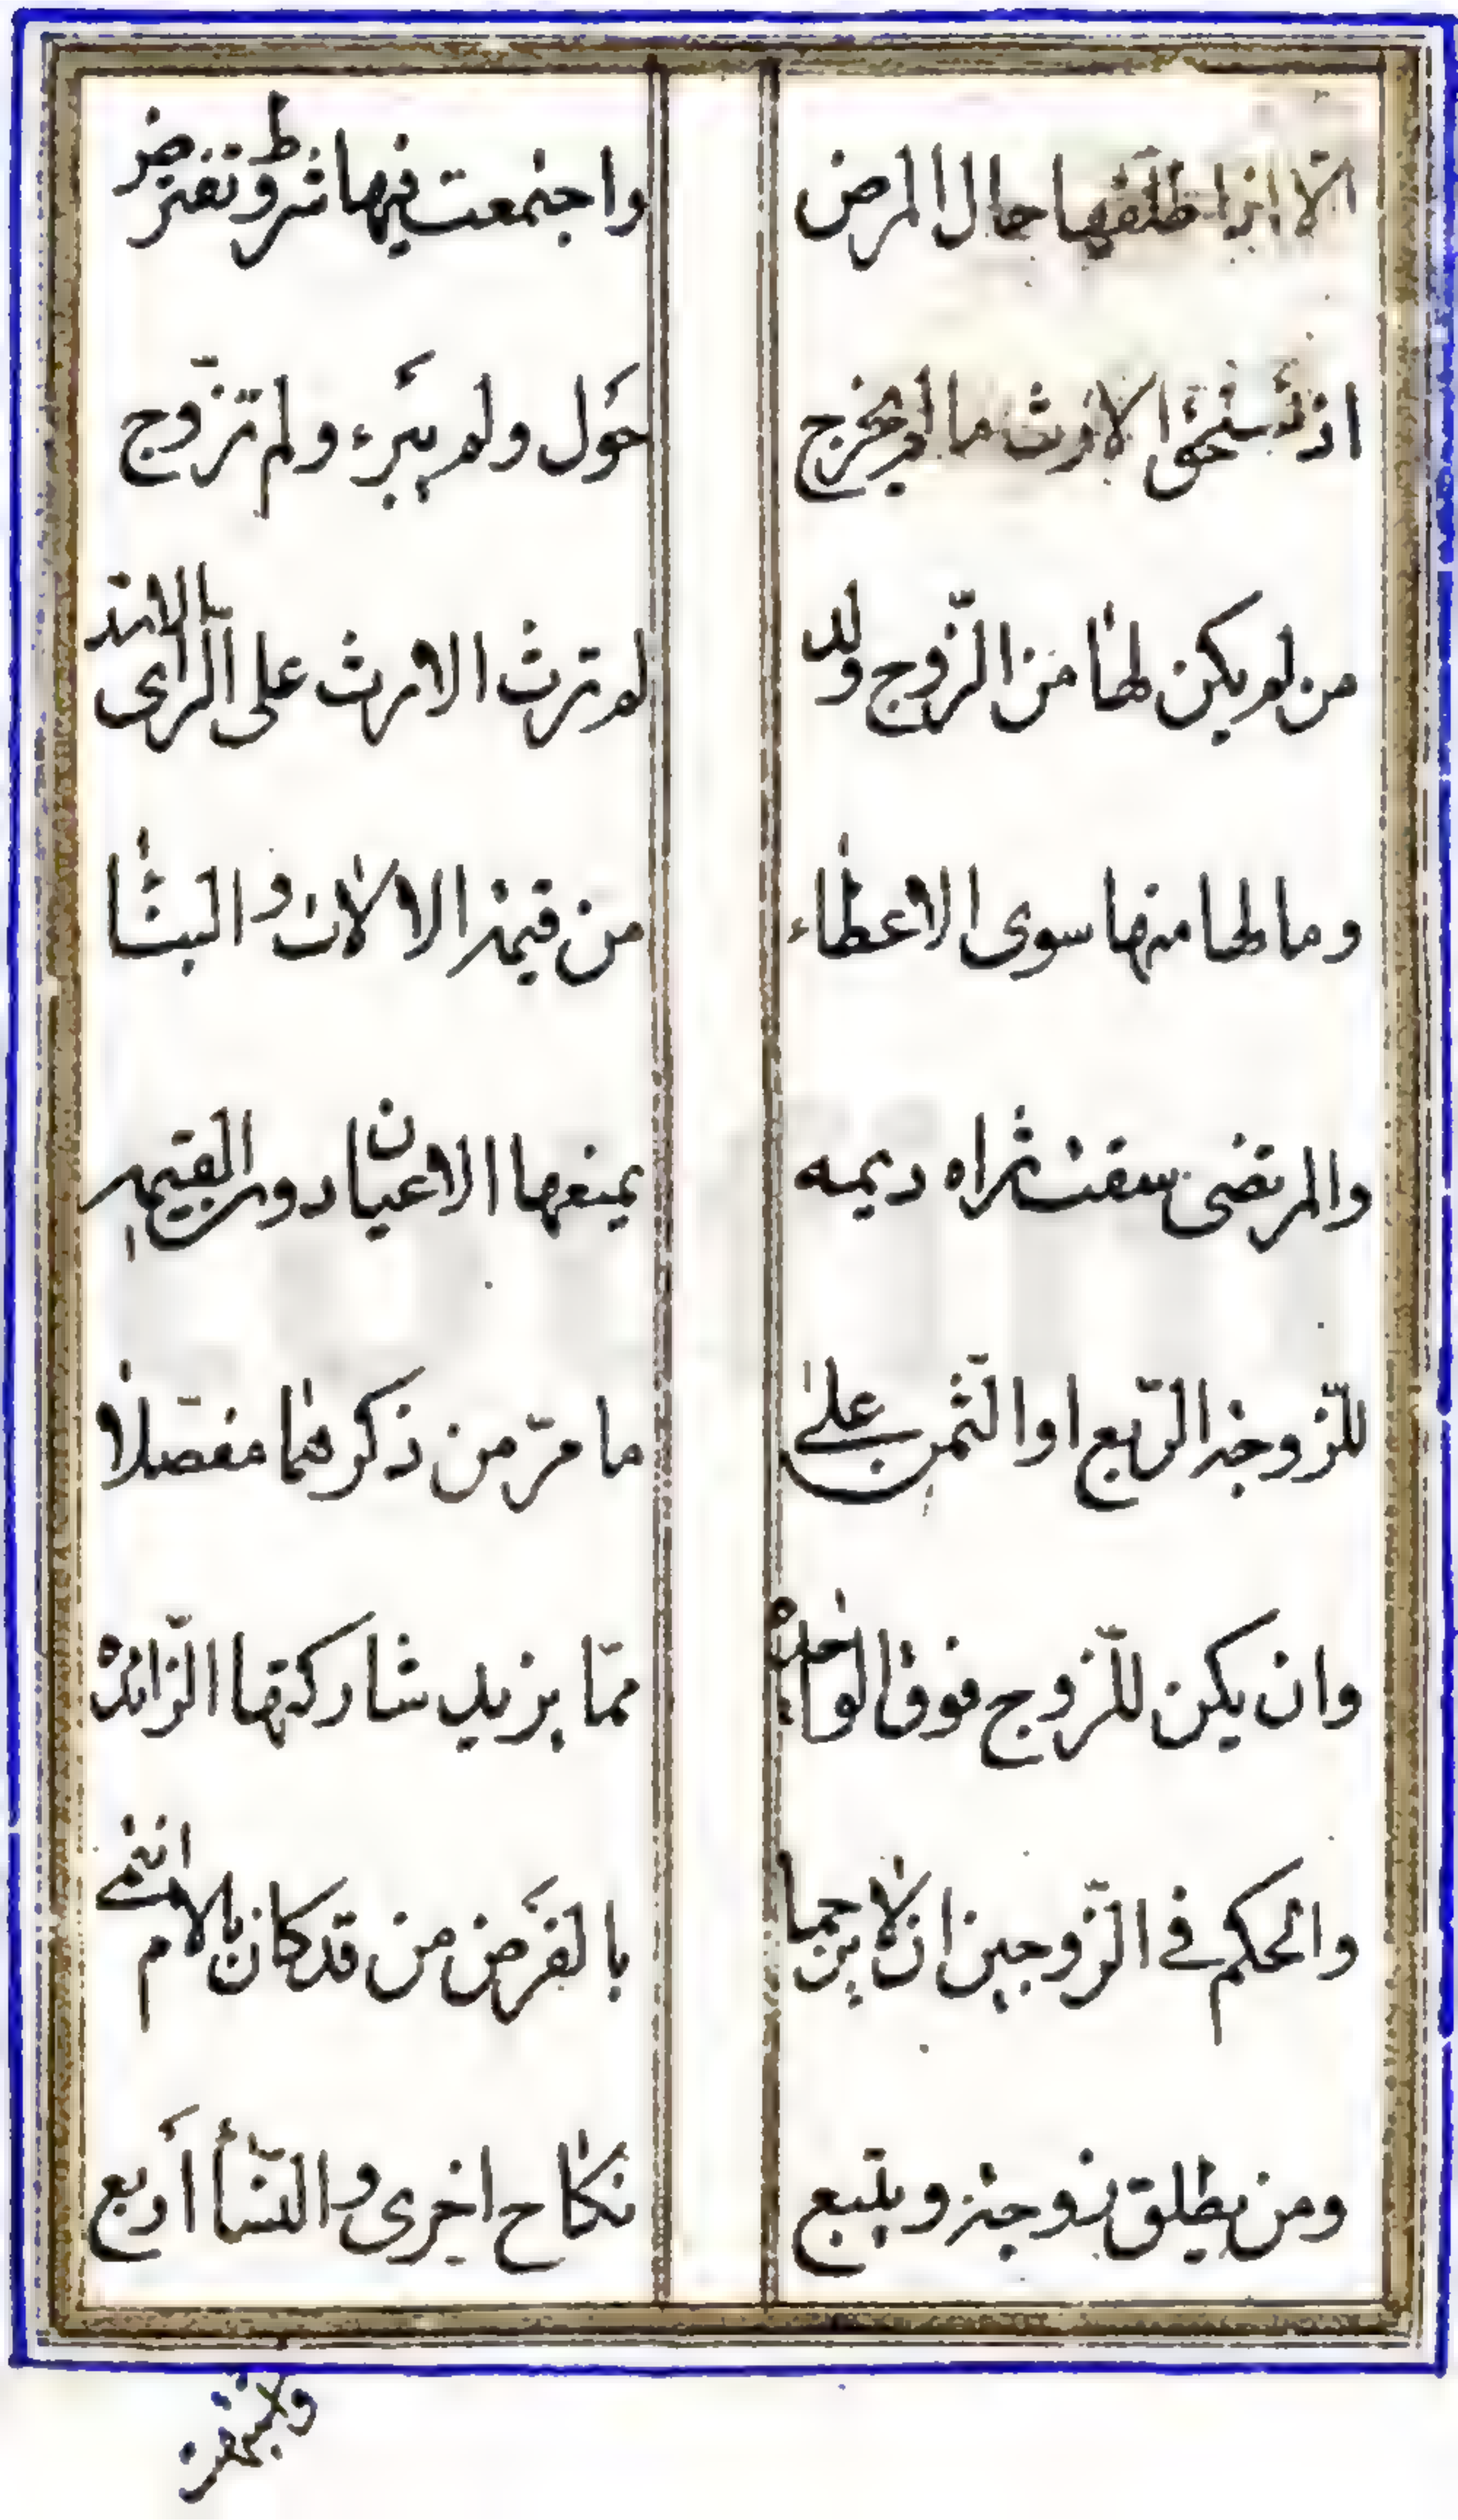 الّا اذا طلّقها حال المرض واجتمعت فيها شروط تفترض
اذ تستحق الارث ما لم يخرج حَول ولم يبرَء ولم تزّوج
من لم يكن لها من الزّوج ولد لم ترث الارث على الرّأى الاسد
وما لها منها سوى الاعطاء من قيمة الالات والبناء
والمرتضى سقت ثراه ديمه يمنعها الاعيان دون القيمه
للزّوجة الرّبع او الثّمن على ما مرّ من ذكرهما مفصّلا
وان يكن للزّوج فوق الواحده ممّا يزيد شاركتها الزّائده
والحكم فى الزّوجين ان لا يرجما بالفَرض من قد كان بالام انتمى
ومن يطلق زوجة ويتبع نكاح اخرى والنّسأ أربع